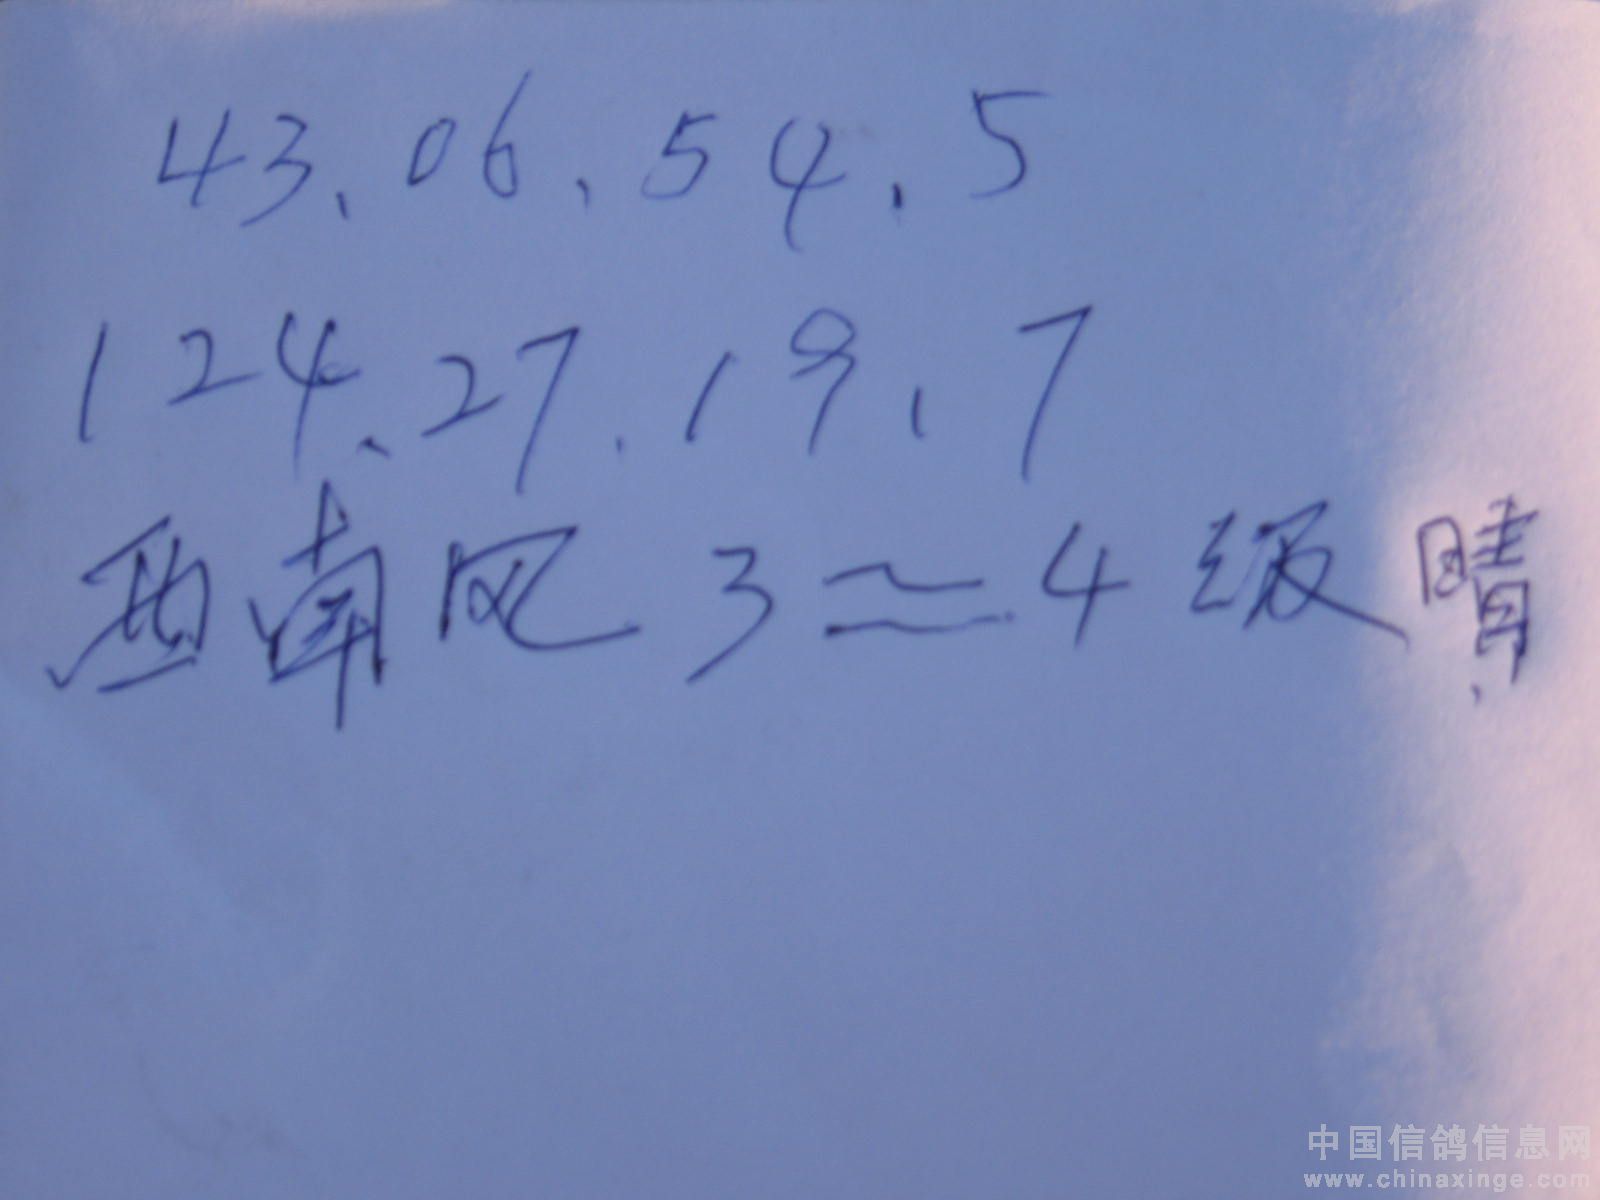 43、06、54、5
124、27、19、7
西南风3≈4级晴、
中国信鸽信息网
www.chinaxinge.com